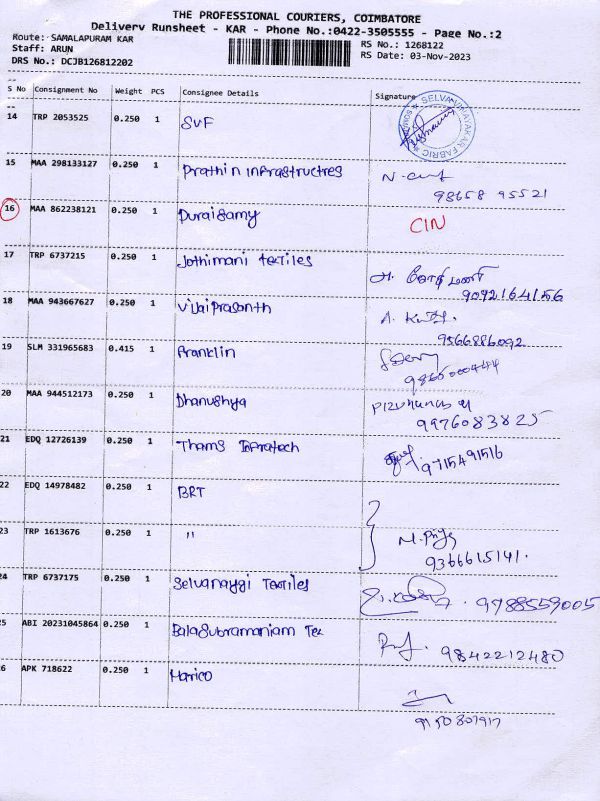 THE PROFESSIONAL COURIERS, COIMBATORE
Delivery Runsheet - KAR - Phone No.:0422-3505555 - Page No.:2
Route: SAMALAPURAM KAR
Staff: ARUN
DRS No.: DCJB126812202
RS No.: 1268122
RS Date: 03-Nov-2023
S No Consignment No Weight PCS Consignee Details Signature
14 TRP 2053525 0.250 1 SVF
15 MAA 298133127 0.250 1 Prathin infrastructres
98658 95521
16 MAA 862238121 0.250 1 Duraisamy CIN
17 TRP 6737215 0.250 1 Jothimani textiles
9092164156
18 MAA 943667627 0.250 1 Vijai Prasanth
9566886092
19 SLM 331965683 0.415 1 Franklin
9865000444
20 MAA 944512173 0.250 1 Dhanushya
9976083825
21 EDQ 12726139 0.250 1 Thams Infratech
9715491516
22 EDQ 14978482 0.250 1 BRT
23 TRP 1613676 0.250 1 "
M. Priya
9366615141.
24 TRP 6737175 0.250 1 Selvanaygi Textiles 9788559005
25 ABI 20231045864 0.250 1 Balasubramaniam Tex 9842212480
26 APK 718622 0.250 1 Marico
9150807917